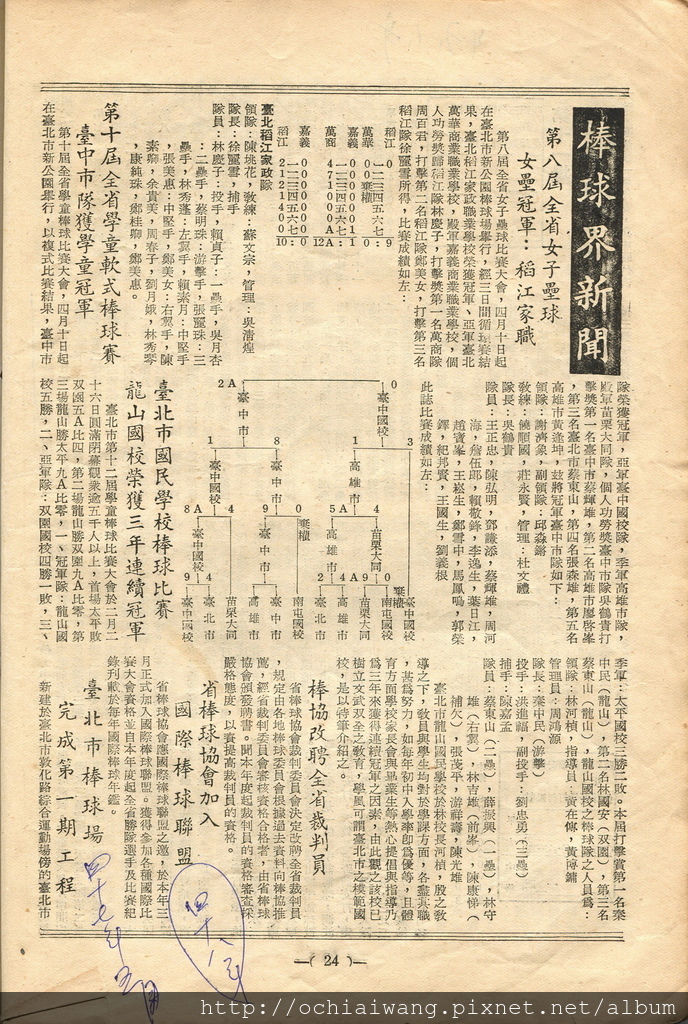 棒球界新聞
第八屆全省女子壘球
女壘冠軍：稻江家職
第八屆全省女子壘球比賽大會，四月十日起
在臺北市新公園棒球場舉行，經三日間循環賽結
果，臺北稻江家政職業學校榮獲冠軍、亞軍臺北
萬華商業職業學校，殿軍嘉義商業職業學校，個
人功勞獎歸稻江隊林慶子，打擊獎第一名萬商隊
周百君，打擊第二名稻江隊鄭美女，打擊第三名
稻江隊徐璽雪所得，比賽成績如左：
萬華 0 棄權
稻江 9
嘉義 0000001 1
萬商 471000A 12A
嘉義 0000000 0
稻江 2121·4 10
臺北稻江家政隊
領隊：陳挑花，敎練：蘇文宗，管理：吳清煌
隊長：徐璽雪，捕手
隊員：林慶子：投手，賴貞子：一壘手，吳月杏
：二壘手，蔡明珠：游擊手，張璽珠：三
壘手，林秀蓬：左翼手，賴素月：中堅手
，張美惠：中堅手，鄭美女：右翼手，陳
素卿，余貴美，周春子，劉月娥，林秀琴
，康純珠，鄭桂卿，鄭美惠。
第十屆全省學童軟式棒球賽
臺中市隊獲學童冠軍
第十屆全省學童棒球比賽大會，四月十日起
在臺北市新公園舉行，以複式比賽結果，臺中市
隊榮獲冠軍，亞軍臺中國校隊，季軍高雄市隊，
殿軍苗栗大同隊，個人功勞獎臺中市隊吳鶴貴打
擊獎第一名臺中市蔡輝雄，第二名高雄市廖啓峯
，第三名臺北市蔡東山，第四名張森雄，第五名
高雄市黃逢坤，玆將冠軍臺中市隊如下：
領隊：謝濟象，副領隊：邱淼鏘
敎練：饒順國，莊永賢，管理：杜文禮
隊長：吳鶴貴
隊員：王正忠，陳弘明，鄧謙添，蔡輝雄，周河
海，詹伍郎，賴敬鋒，李逸生，葉日江，
趙寶峯，王崧生，鄭雪中，馬鳳鳴，郭榮
鐸，紀邦賢，王國生，劉義根
此誌比賽成績如左：
2A 0
臺中市 臺中國校
1 8 1 3
臺中國校 臺中市 高雄市
8A 4 9 0 5A 4
臺中國校 臺中市 棄權 高雄市 苗栗大同
9 4 2 4A 9 0 棄權
臺中國校 臺北市 苗栗大同 高雄市 臺中市 南屯國校 臺北市 高雄市 苗栗大同 南屯國校 臺中國校
臺北市國民學校棒球比賽
龍山國校榮獲三年連續冠軍
臺北市第十二屆學童棒球比賽大會於二月二
十六日圓滿閉幕觀衆逾五千人以上，首場太平敗
双園五A比四，第二場龍山勝双園九A比零，第
三場龍山勝太平九A比零，一、冠軍隊：龍山國
校五勝，二、亞軍隊：双園國校四勝一敗，三、
季軍：太平國校三勝二敗。本屆打擊賞第一名秦
中民（龍山），第二名林國安（双園），第三名
蔡東山（龍山），龍山國校之棒球隊之人員爲：
領隊：林河楨，指導員：黃在傳，黃博鏞
管理員：周鴻源
隊長：龔中民（游擊）
投手：洪進福，副投手：劉忠勇（三壘）
捕手：陳嘉孟
隊員：蔡東山（二壘），薛振興（一壘），林守
雄（右翼），林吉雄（前峯），陳康悌（
補欠），張茂平，游祥壽，陳光雄
臺北市龍山國民學校於林校長河楨，殷之敎
導之下，敎員與學生均對於學課方面，各盡其職
，甚爲努力，如每年初中入學率即爲優等，且體
育方面學校家長會與畢業生等熱心提倡與指導乃
爲三年來獲得連續冠軍之因素，由此觀之該校已
樹立文武双全之敎育，學風可謂臺北市之模範國
校，是以特筆介紹之。
棒協改聘全省裁判員
省棒球協會裁判委員會決定改聘全省裁判員
，規定由各地棒球委員會根據過去資料向棒協推
薦，經省裁判委員會審核資格合格者，由省棒球
協會頒發聘書。聞本年度起裁判員的資格審查採
嚴格態度，以資提高裁判員的資格。
省棒球協會加入
國際棒球聯盟
省棒球協會應國際棒球聯盟之邀，於本年三
月正式加入國際棒球聯盟。獲得參加各種國際比
賽大會資格並自本年度起全省勝隊選手及比賽紀
錄刋載於每年國際棒球年鑑。
臺北市棒球場
完成第一期工程
新建於臺北市敦化路綜合運動場傍的臺北市
四十八年
四十七年
—( 24 )—
http://ochiaiwang.pixnet.net/album